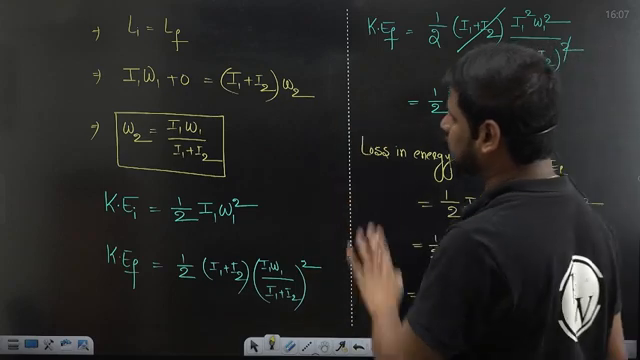 ⇒ Li = Lf
⇒ I₁W₁ + 0 = (I₁+I₂)ω₂
⇒ ω₂ = I₁W₁ / (I₁+I₂)
K.Ei = 1/2 I₁ω₁²
K.Ef = 1/2 (I₁+I₂) (I₁ω₁ / (I₁+I₂))²
K.Ef = 1/2 (I₁+I₂) I₁²ω₁²
= 1/2
Loss in energy
= 1/2
=
=
16:07
N